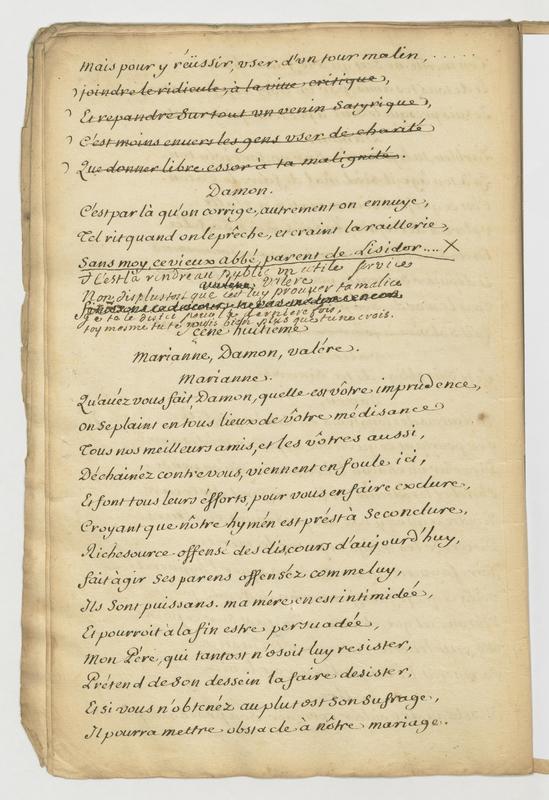 Mais pour y réüssir, vser d'vn tour malin, ......
joindre le ridicule, à la viue critique,
Et repandre sur tout vn venin Satyrique,
C'est moins enuers les gens vser de charité
Que donner libre essor à ta malignité.
Damon.
C'est par là qu'on corrige, autrement on ennuye,
Tel rit quand on le prêche, et craint la raillerie,
Sans moy, ce vieux abbé, parent de Lisidor.... X
C'est là rendre au public vn utile service
Valere
Non, dis plustost que c'est luy prouver ta malice
je te le dis icy pour la derniere fois,
toy mesme tu te nuis bien plus que tu ne crois.
Scêne huitiême
Marianne, Damon, valére.
Marianne.
Qu'auéz vous fait Damon, quelle est vôtre imprudence,
on se plaint en tous lieux de vôtre médisance
Tous nos meilleurs amis, et les vôtres aussi,
Déchainéz contre vous, viennent en foule ici,
Et font tous leurs éfforts, pour vous en faire exclure,
Croyant que nôtre hymén est prést à se conclure,
Richesource offensé des discours d'aujourd'huy,
fait àgir ses parens offenséz comme luy,
Ils sont puissans. ma mére en est intimidée,
Et pourroit à la fin estre persuadée,
Mon Pére, qui tantost n'osoit luy resister,
Prétend de son dessein la faire desister,
Et si vous n'obtenéz au plutost son sufrage,
Il pourra mettre obstacle à nôtre mariage.